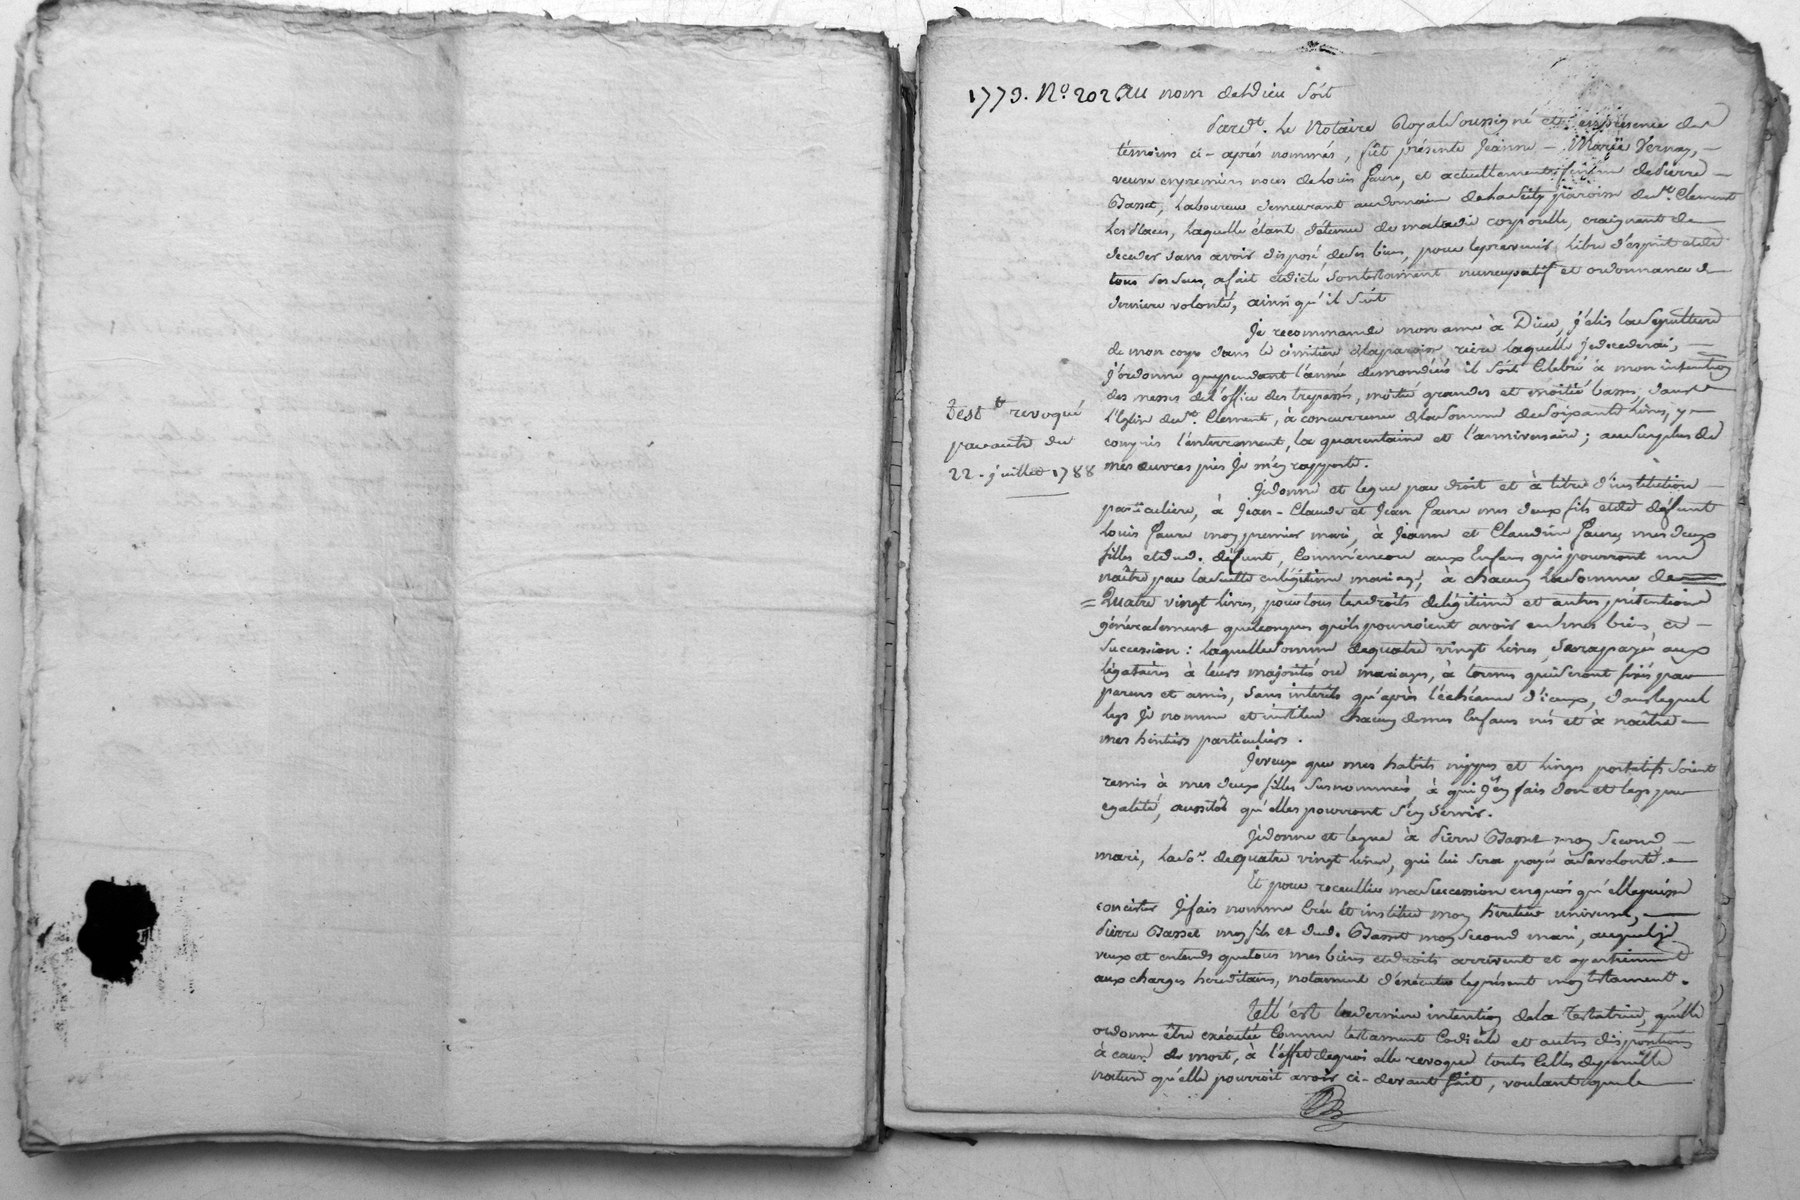 1773. No. 202. Au nom de Dieu soit
Pardt. Le Notaire Royal soussigné et en présence des
témoins ci-après nommés, fût présente Jeanne-Marie Vernay,
veuve en premiers noces de Louis Faure, et actuellement femme de Pierre
Basset, Laboureur demeurant au domaine de paroisse de St. Clement
Les Places, laquelle étant détenue de maladie corporelle, craignant de
deceder sans avoir disposé de ses biens, pour le prevenir, libre d'esprit et de
tous ses sens, a fait et dicté son testament nuncupatif et ordonnance de
derniere volonté, ainsi qu'il suit
Je recommande mon ame à Dieu, j'élis la sepulture
de mon corps dans le cimitière de la paroisse rière laquelle je decederai,
j'ordonne que pendant l'année de mon décés il soit celebré à mon intention
des messes de l'office des trepassés, moitié grandes et moitié basses, dans
l'Eglise de St. Clement, à concurrence de la somme de soixante livres, y
compris l'enterrement, la quarantaine et l'anniversaire; au surplus de
mes œuvres pies je m'en rapporte.
Testt. revoqué
par acte du
22. juillet 1788
Je donne et legue par droit et à titre d'institution
particuliere, à Jean-Claude et Jean Faure mes deux fils et de défunt
Louis Faure mon premier mari, à Jeanne et Claudine Faure mes deux
filles et dud. défunt, comme encore aux Enfans qui pourront me
naître par la suite en légitime mariage, à chacun la somme de
Quatre vingt livres, pour tous les droits de légitime et autres prétentions
généralement quelconques qu'ils pourroient avoir en mes biens et
succession: laquelle somme de quatre vingt livres, sera payée aux
légataires à leurs majorités ou mariages, à termes qui seront fixés par
parens et amis, sans interêts qu'après l'échéance d'iceux, dans lequel
legs je nomme et institue chacun de mes Enfans nés et à naître
mes héritiers particuliers.
Je veux que mes habits nippes et linges portatifs soient
remis à mes deux filles susnommées à qui j'en fais don et legs par
egalité, aussitôt qu'elles pourront s'en servir.
Je donne et legue à Pierre Basset mon second
mari, la so. de quatre vingt livres, qui lui sera payée à sa volonté.
Et pour recueillir ma succession en quoi qu'elle puisse
concister je fais nomme crée et institue mon héritier universel,
Pierre Basset mon fils et dud. Basset mon second mari, auquel je
veux et entends que tous mes biens et droits arrivent et apartiennent
aux charges hereditaires, notament d'exécuter le présent mon testament.
Tell' est la derniere intention de la Testatrice, qu'elle
ordonne être exécutée comme testament codicile et autres dispositions
à cause de mort, à l'effet de quoi elle revoque toutes celles de pareille
nature qu'elle pourroit avoir ci-devant fait, voulant que le